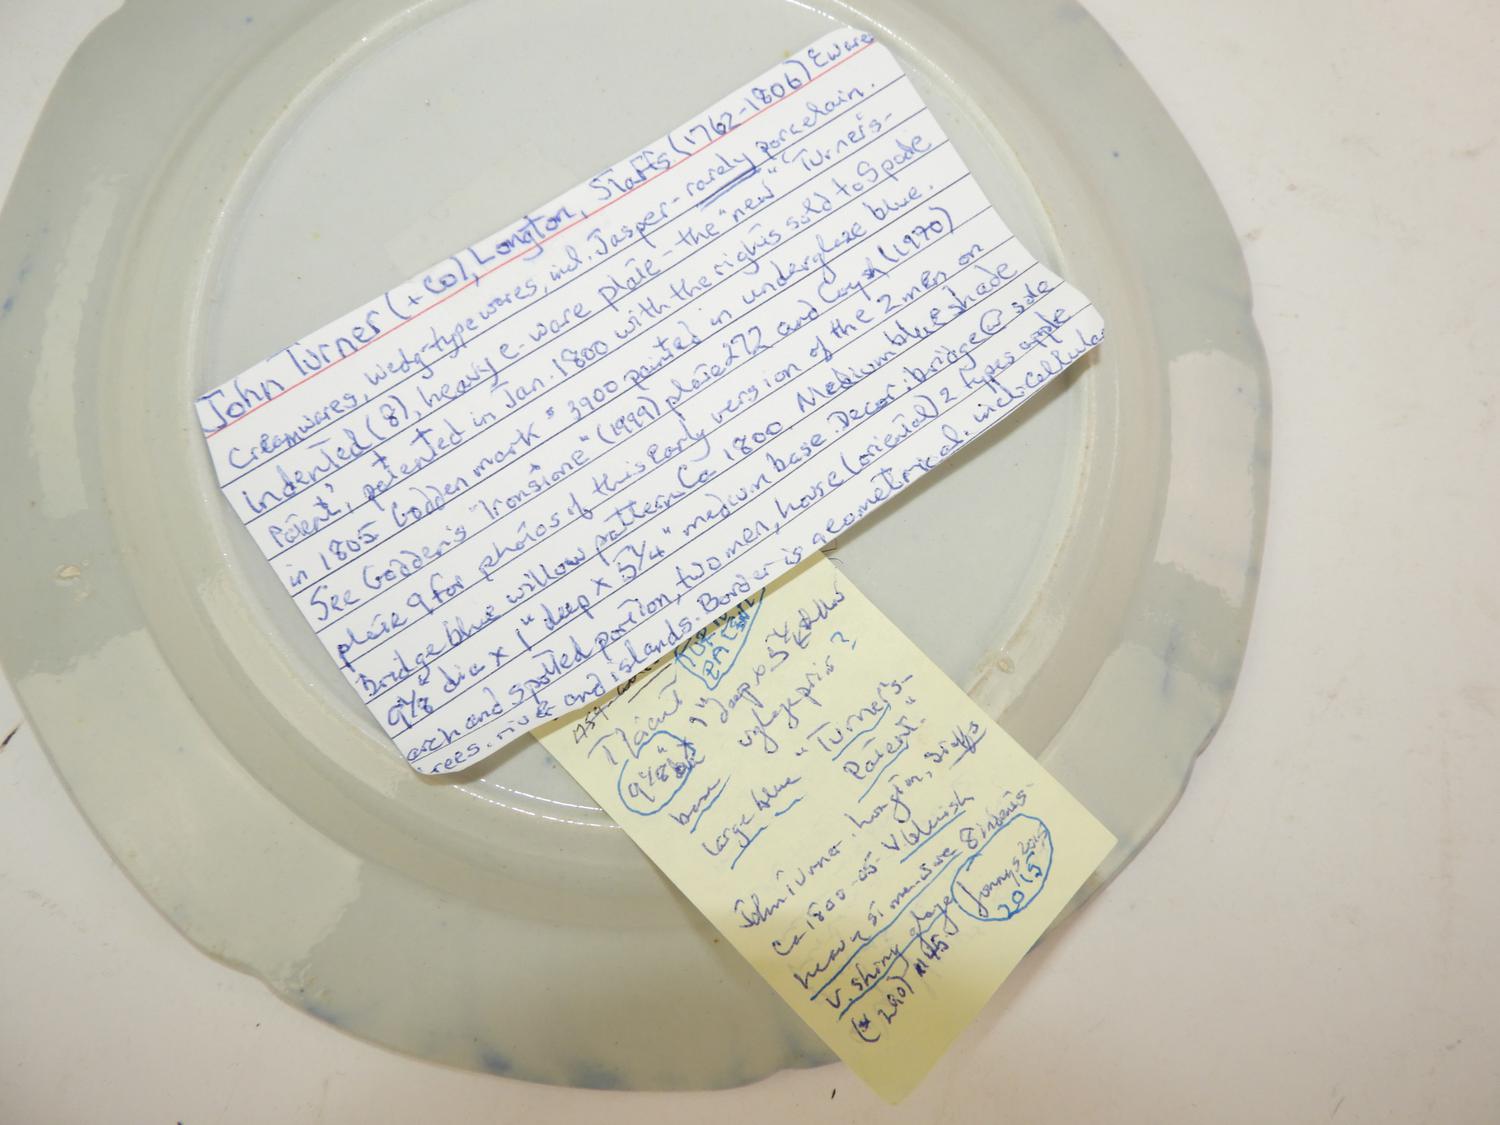 John Turner (+Co), Longton, Staffs. (1762-1806) Eware
Creamwares, wedg-type wares, incl. Jasper-rarely porcelain.
Indented (8), heavy e-ware plate- the "new" "Turner's-
Patent", patented in Jan. 1800 with the rights sold to Spode
in 1805 Godden mark # 3900 painted in underglaze blue.
See Godden's "Ironstone" (1999) plate 272 and Coysh (1970)
plate 9 for photos of this early version of the 2 men on
bridge blue willow pattern Ca 1800. Medium blue shade
9⅞" dia x 1" deep x 5¼" medium base. Decor: bridge @ sole
arch and spotted portion, two men, house (oriental) 2 types apple
trees, and islands. Border is geometrical, incl. cellular
Plain
9⅞" 1" deep x 5¼
base uglaze print?
large blue "Turner's-
Patent"
John Turner Longton, Staffs
Ca 1800-05- V. bluish
heavy stoneware 8 indents-
V. shiny glaze Jonnys 2015
2015
(* 290) 145